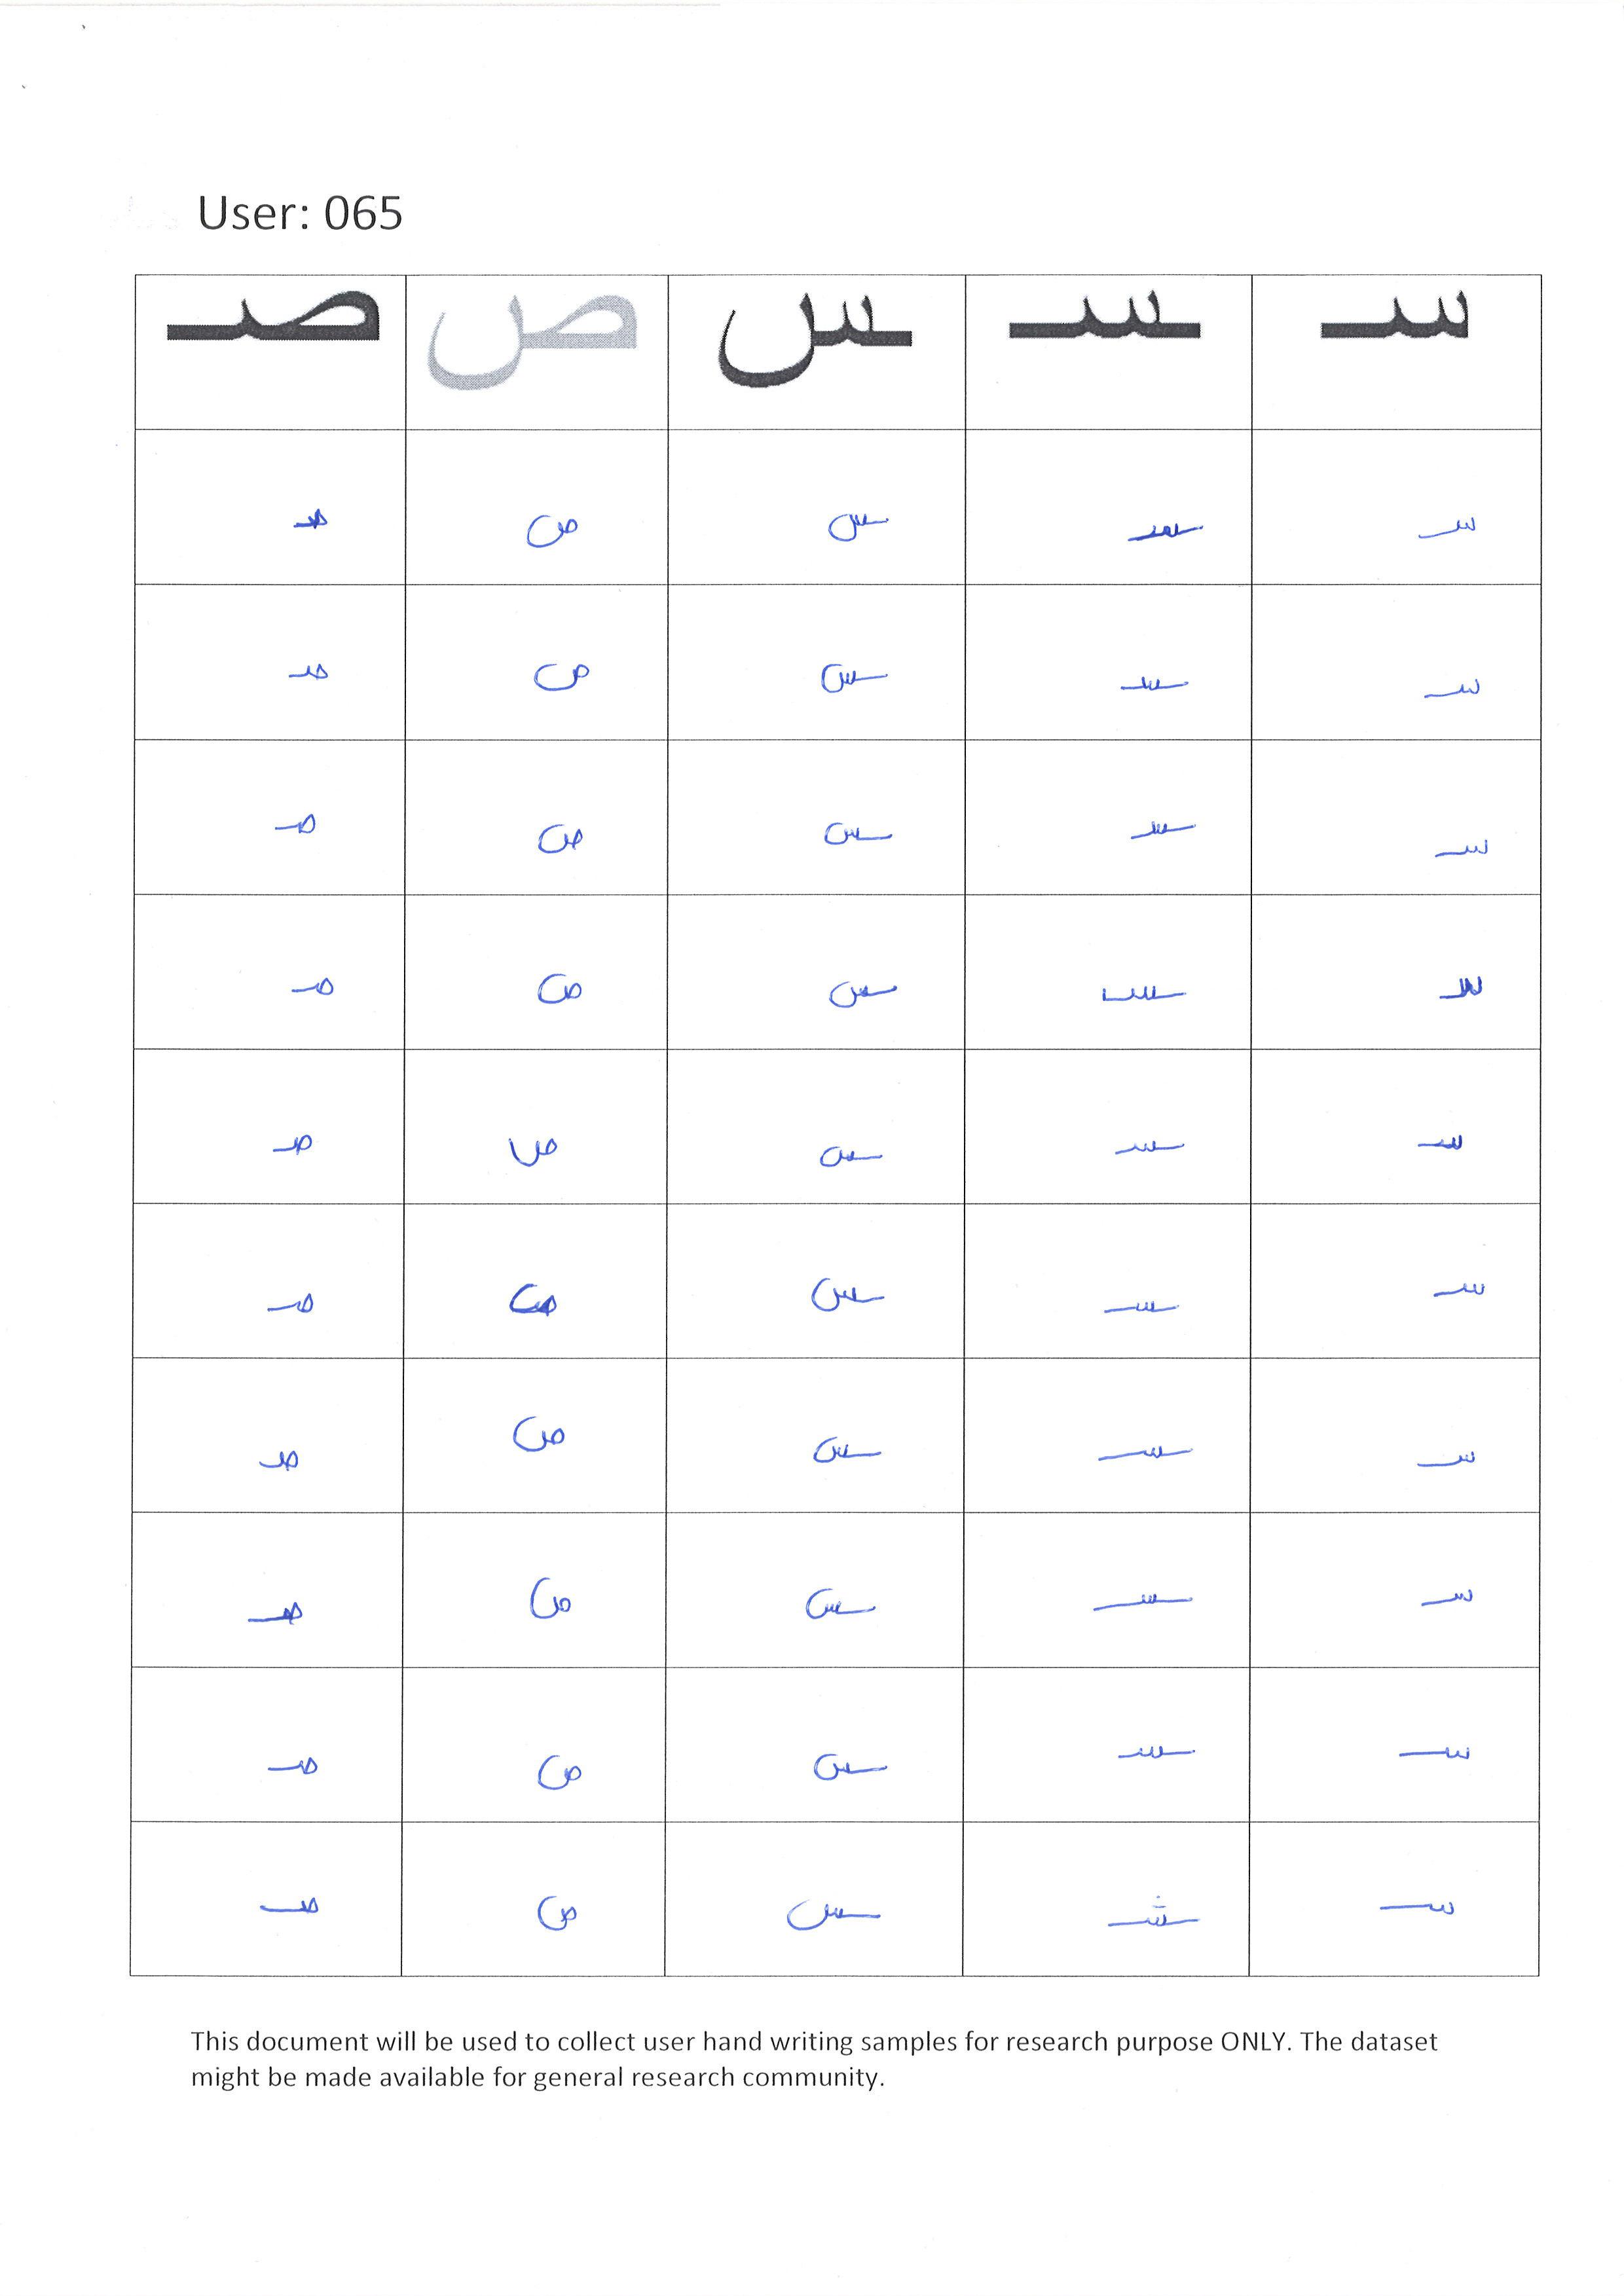 User: 065
سـ ـسـ ـس ص صـ
سـ ـسـ ـس ص صـ
سـ ـسـ ـس ص صـ
سـ ـسـ ـس ص صـ
سـ ـسـ ـس ص صـ
سـ ـسـ ـس ص صـ
سـ ـسـ ـس ص صـ
سـ ـسـ ـس ص صـ
سـ ـسـ ـس ص صـ
سـ ـسـ ـس ص صـ
سـ ـشـ ـس ص صـ
This document will be used to collect user hand writing samples for research purpose ONLY. The dataset
might be made available for general research community.